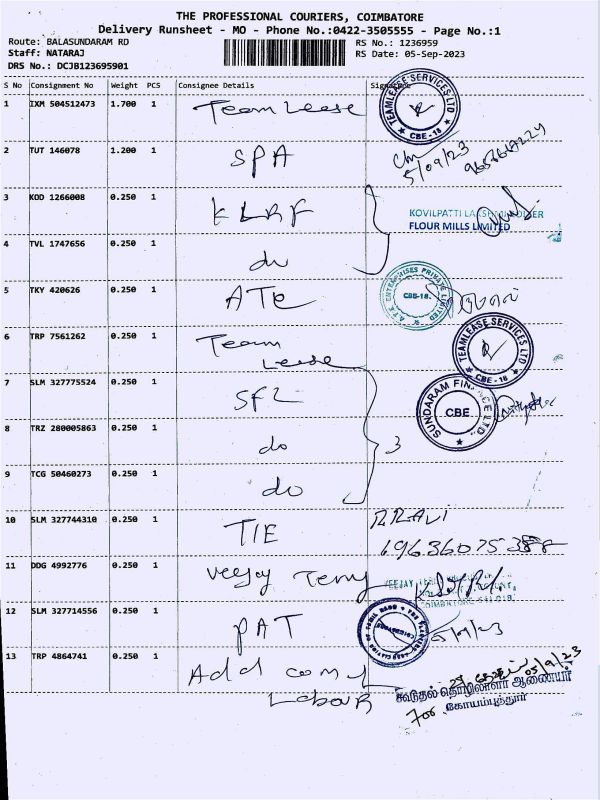 THE PROFESSIONAL COURIERS, COIMBATORE
Delivery Runsheet - MO - Phone No.:0422-3505555 - Page No.:1
Route: BALASUNDARAM RD
Staff: NATARAJ
DRS No.: DCJB123695901
RS No.: 1236959
RS Date: 05-Sep-2023
S No Consignment No Weight PCS Consignee Details Signature
1 IXM 504512473 1.700 1 Team Lease
TEAMLEASE SERVICES LTD
CBE - 18
5/09/23
2 TUT 146078 1.200 1 SPA
3 KOD 1266008 0.250 1 KLRF
KOVILPATTI
FLOUR MILLS LIMITED
4 TVL 1747656 0.250 1 do
5 TKY 420626 0.250 1 ATE
A.T.E. ENTERPRISES PRIVATE LIMITED
CBE-18.
6 TRP 7561262 0.250 1 Team
Lease
TEAMLEASE SERVICES LTD
CBE - 18
7 SLM 327775524 0.250 1 SFL
SUNDARAM FINANCE LTD.,
CBE
8 TRZ 280005863 0.250 1 do
3
9 TCG 50460273 0.250 1 do
10 SLM 327744310 0.250 1 TIE
R.RAVI
11 DDG 4992776 0.250 1 Veejay Terry
12 SLM 327714556 0.250 1 PAT
5/9/23
13 TRP 4864741 0.250 1 Add com
Labour
05/9/23
கூடுதல் தொழிலாளர் ஆணையர்
கோயம்புத்தூர்